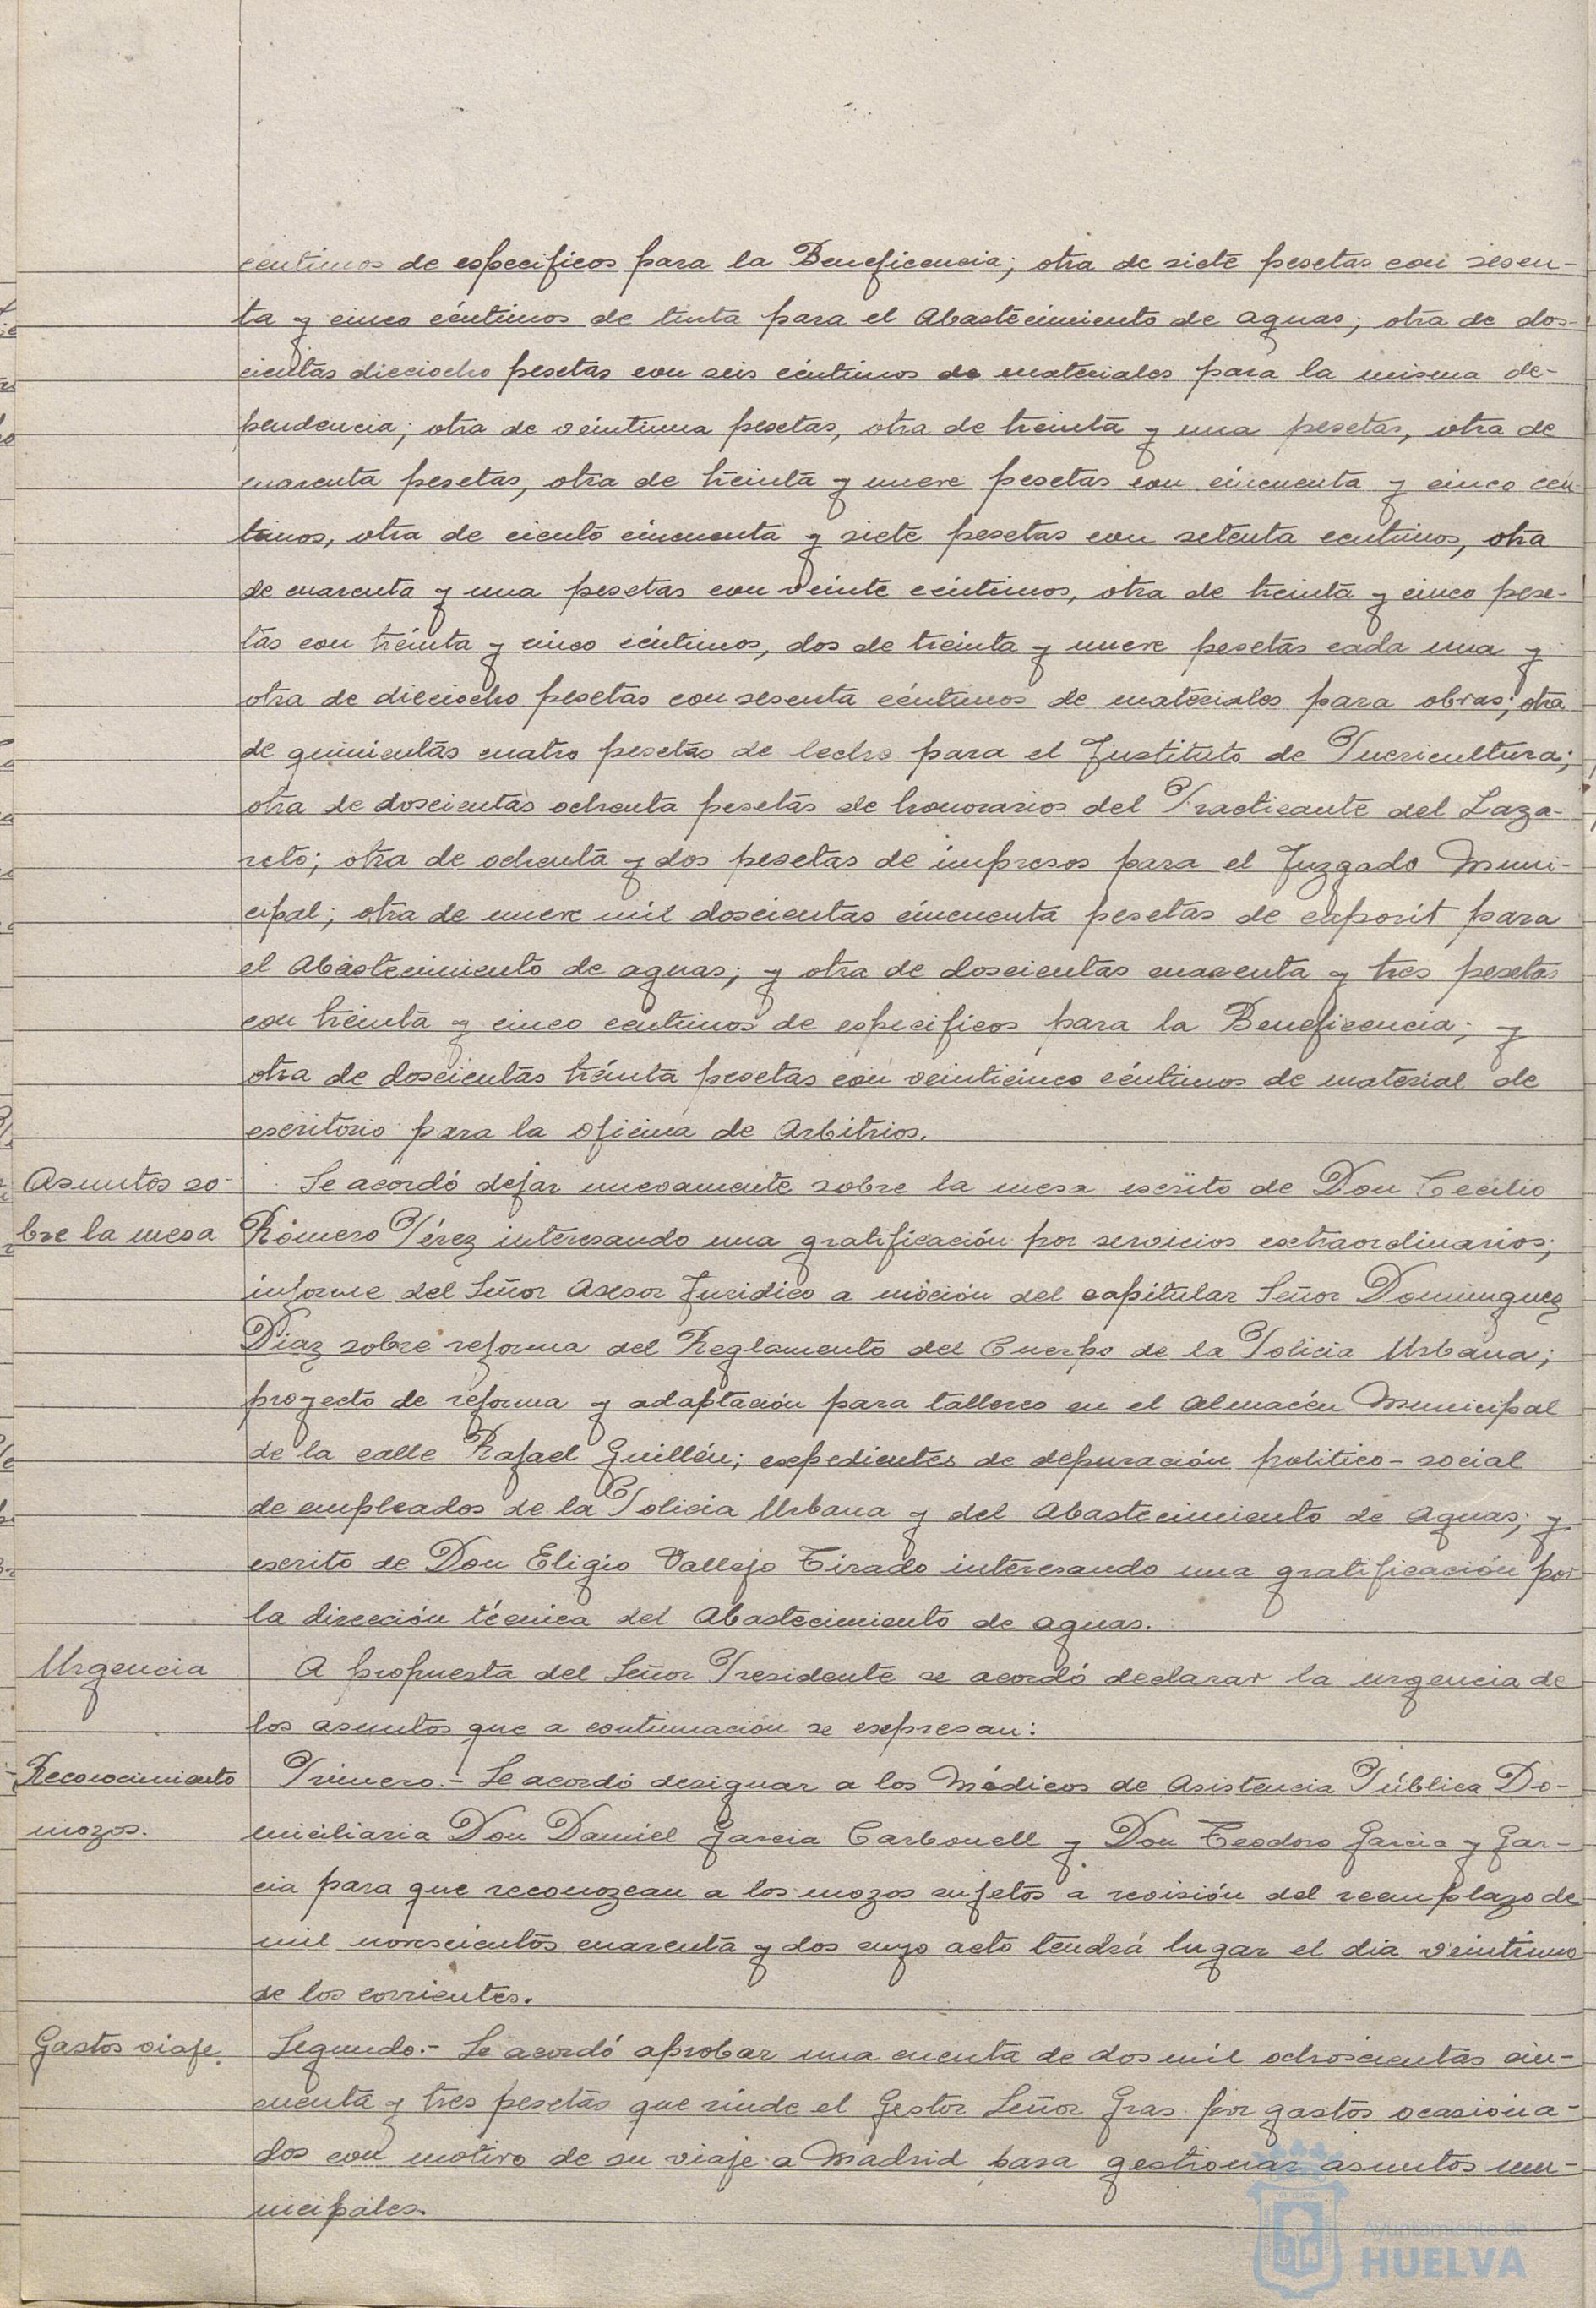 centimos de especificos para la Beneficencia; otra de siete pesetas con sesen-
ta y cinco céntimos de tinta para el Abastecimiento de aguas; otra de dos-
cientas dieciocho pesetas con seis céntimos de materiales para la misma de-
pendencia; otra de veintiuna pesetas, otra de treinta y una pesetas, otra de
cuarenta pesetas, otra de treinta y nueve pesetas con cincuenta y cinco cén-
timos, otra de ciento cincuenta y siete pesetas con setenta centimos, otra
de cuarenta y una pesetas con veinte céntimos, otra de treinta y cinco pese-
tas con treinta y cinco céntimos, dos de treinta y nueve pesetas cada una y
otra de dieciocho pesetas con sesenta céntimos de materiales para obras; otra
de quinientas cuatro pesetas de leche para el Instituto de Puericultura;
otra de doscientas ochenta pesetas de honorarios del Practicante del Laza-
reto; otra de ochenta y dos pesetas de impresos para el Juzgado Muni-
cipal; otra de nueve mil doscientas cincuenta pesetas de caporit para
el Abastecimiento de aguas; y otra de doscientas cuarenta y tres pesetas
con treinta y cinco centimos de especificos para la Beneficencia; y
otra de doscientas treinta pesetas con veinticinco céntimos de material de
escritorio para la oficina de Arbitrios.
Asuntos so-
bre la mesa
Se acordó dejar nuevamente sobre la mesa escrito de Don Cecilio
Romero Pérez interesando una gratificación por servicios extraordinarios;
informe del Señor Asesor Juridico a moción del capitular Señor Dominguez
Diaz sobre reforma del Reglamento del Cuerpo de la Policia Urbana;
proyecto de reforma y adaptación para talleres en el Almacén Municipal
de la calle Rafael Guillén; expedientes de depuración politico-social
de empleados de la Policia Urbana y del Abastecimiento de Aguas; y
escrito de Don Eligio Vallejo Tirado interesando una gratificación por
la dirección técnica del Abastecimiento de aguas.
Urgencia
A propuesta del Señor Presidente se acordó declarar la urgencia de
los asuntos que a continuación se expresan:
Reconocimiento
mozos.
Primero.- Se acordó designar a los Médicos de Asistencia Pública Do-
miciliaria Don Daniel Garcia Carbonell y Don Teodoro Garcia y Gar-
cia para que reconozcan a los mozos sujetos a revisión del reemplazo de
mil novescientos cuarenta y dos cuyo acto tendrá lugar el dia veintiuno
de los corrientes.
Gastos viaje.
Segundo.- Se acordó aprobar una cuenta de dos mil ochoscientas cin-
cuenta y tres pesetas que rinde el Gestor Señor Gras por gastos ocasiona-
dos con motivo de su viaje a Madrid para gestionar asuntos mu-
nicipales.
Ayuntamiento de
HUELVA